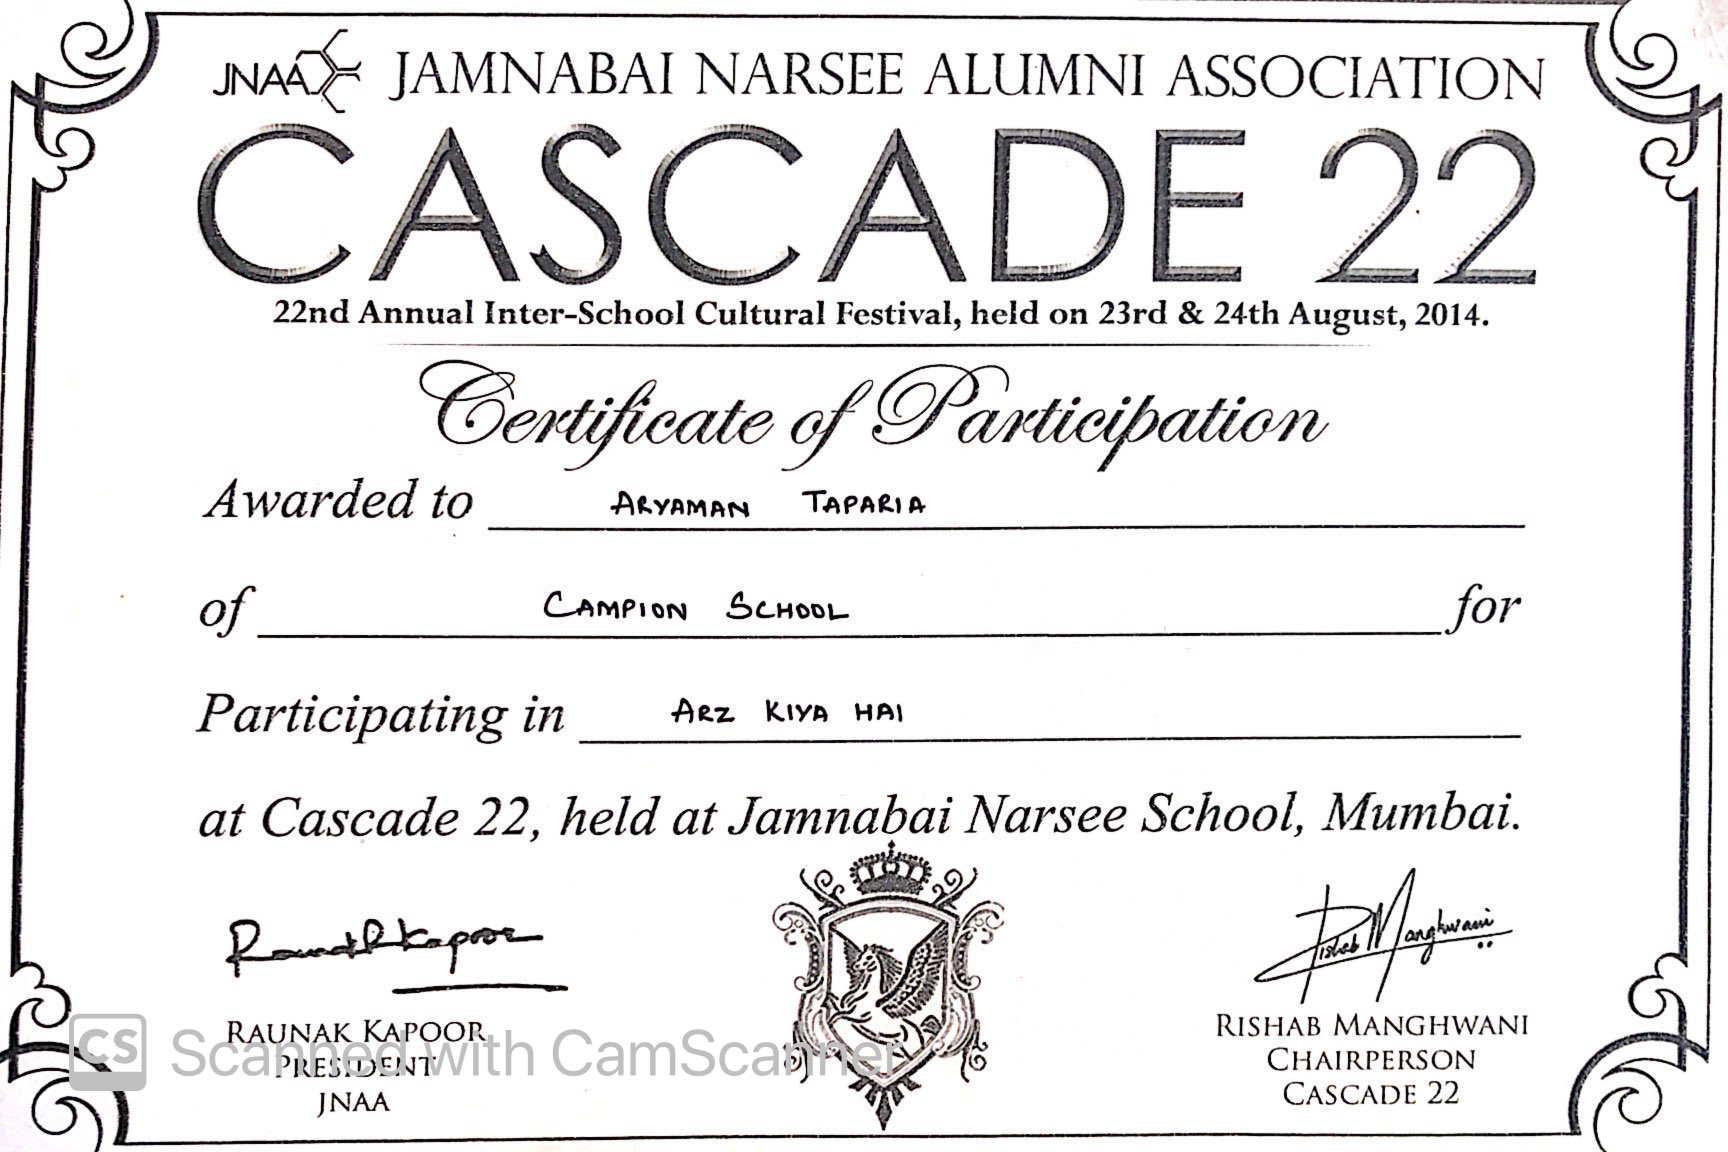 JNAA JAMNABAI NARSEE ALUMNI ASSOCIATION
CASCADE 22
22nd Annual Inter-School Cultural Festival, held on 23rd & 24th August, 2014.
Certificate of Participation
Awarded to ARYAMAN TAPARIA
of CAMPION SCHOOL for
Participating in ARZ KIYA HAI
at Cascade 22, held at Jamnabai Narsee School, Mumbai.
Raunak Kapoor
Rishab Manghwani
RAUNAK KAPOOR
PRESIDENT
JNAA
RISHAB MANGHWANI
CHAIRPERSON
CASCADE 22
CS Scanned with CamScanner